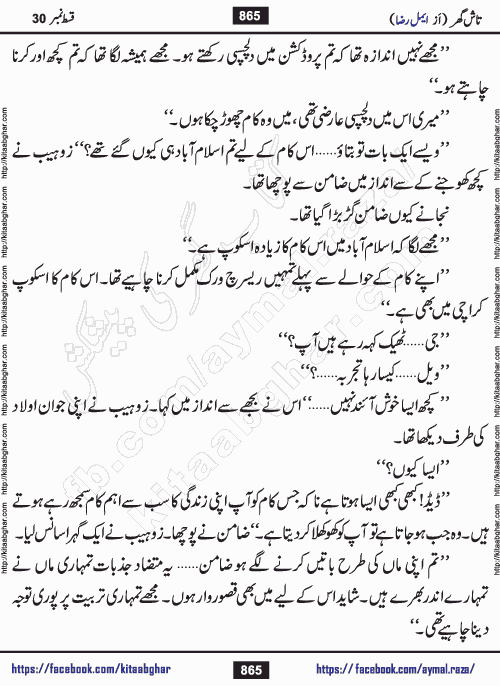 تاش گھر (از ایمل رضا) 865 قسط نمبر 30
’’مجھے نہیں اندازہ تھا کہ تم پروڈکشن میں دلچسپی رکھتے ہو۔ مجھے ہمیشہ لگا تھا کہ تم کچھ اور کرنا
چاہتے ہو۔‘‘
’’میری اس میں دلچسپی عارضی تھی، میں وہ کام چھوڑ چکا ہوں۔‘‘
’’ویسے ایک بات تو بتاؤ......اس کام کے لیے تم اسلام آباد ہی کیوں گئے تھے؟‘‘ زوہیب نے
کچھ کھوجنے کے سے انداز میں ضامن سے پوچھا تھا۔
نجانے کیوں ضامن گڑبڑا گیا تھا۔
’’مجھے لگا کہ اسلام آباد میں اس کام کا زیادہ اسکوپ ہے۔‘‘
’’اپنے کام کے حوالے سے پہلے تمہیں ریسرچ ورک مکمل کرنا چاہیے تھا۔ اس کام کا اسکوپ
کراچی میں بھی ہے۔‘‘
’’جی......ٹھیک کہہ رہے ہیں آپ؟‘‘
’’ویل......کیسا رہا تجربہ......؟‘‘
’’کچھ ایسا خوش آئند نہیں......‘‘ اس نے بجھے سے انداز میں کہا۔ زوہیب نے اپنی جوان اولاد
کی طرف دیکھا تھا۔
’’ایسا کیوں؟‘‘
’’ڈیڈ! کبھی کبھی ایسا ہوتا ہے نا کہ جس کام کو آپ اپنی زندگی کا سب سے اہم کام سمجھ رہے ہوتے
ہیں۔ وہ جب ہو جاتا ہے تو آپ کو کھوکھلا کر دیتا ہے۔‘‘ ضامن نے پوچھا۔ زوہیب نے ایک گہرا سانس لیا۔
’’تم اپنی ماں کی طرح باتیں کرنے لگے ہو ضامن...... یہ متضاد جذبات تمہاری ماں نے
تمہارے اندر بھرے ہیں۔ شاید اس کے لیے میں بھی قصوروار ہوں۔ مجھے تمہاری تربیت پر پوری توجہ
دینا چاہیے تھی۔‘‘
https://facebook.com/kitaabghar 865 https://facebook.com/aymal.raza/
http://kitaabghar.com http://kitaabghar.com http://kitaabghar.com http://kitaabghar.com http://kitaabghar.com http://kitaabghar.com
http://kitaabghar.com http://kitaabghar.com http://kitaabghar.com http://kitaabghar.com http://kitaabghar.com http://kitaabghar.com
کتاب گھر کی پیشکش
fb.com/aymal.raza
kitaabghar.com